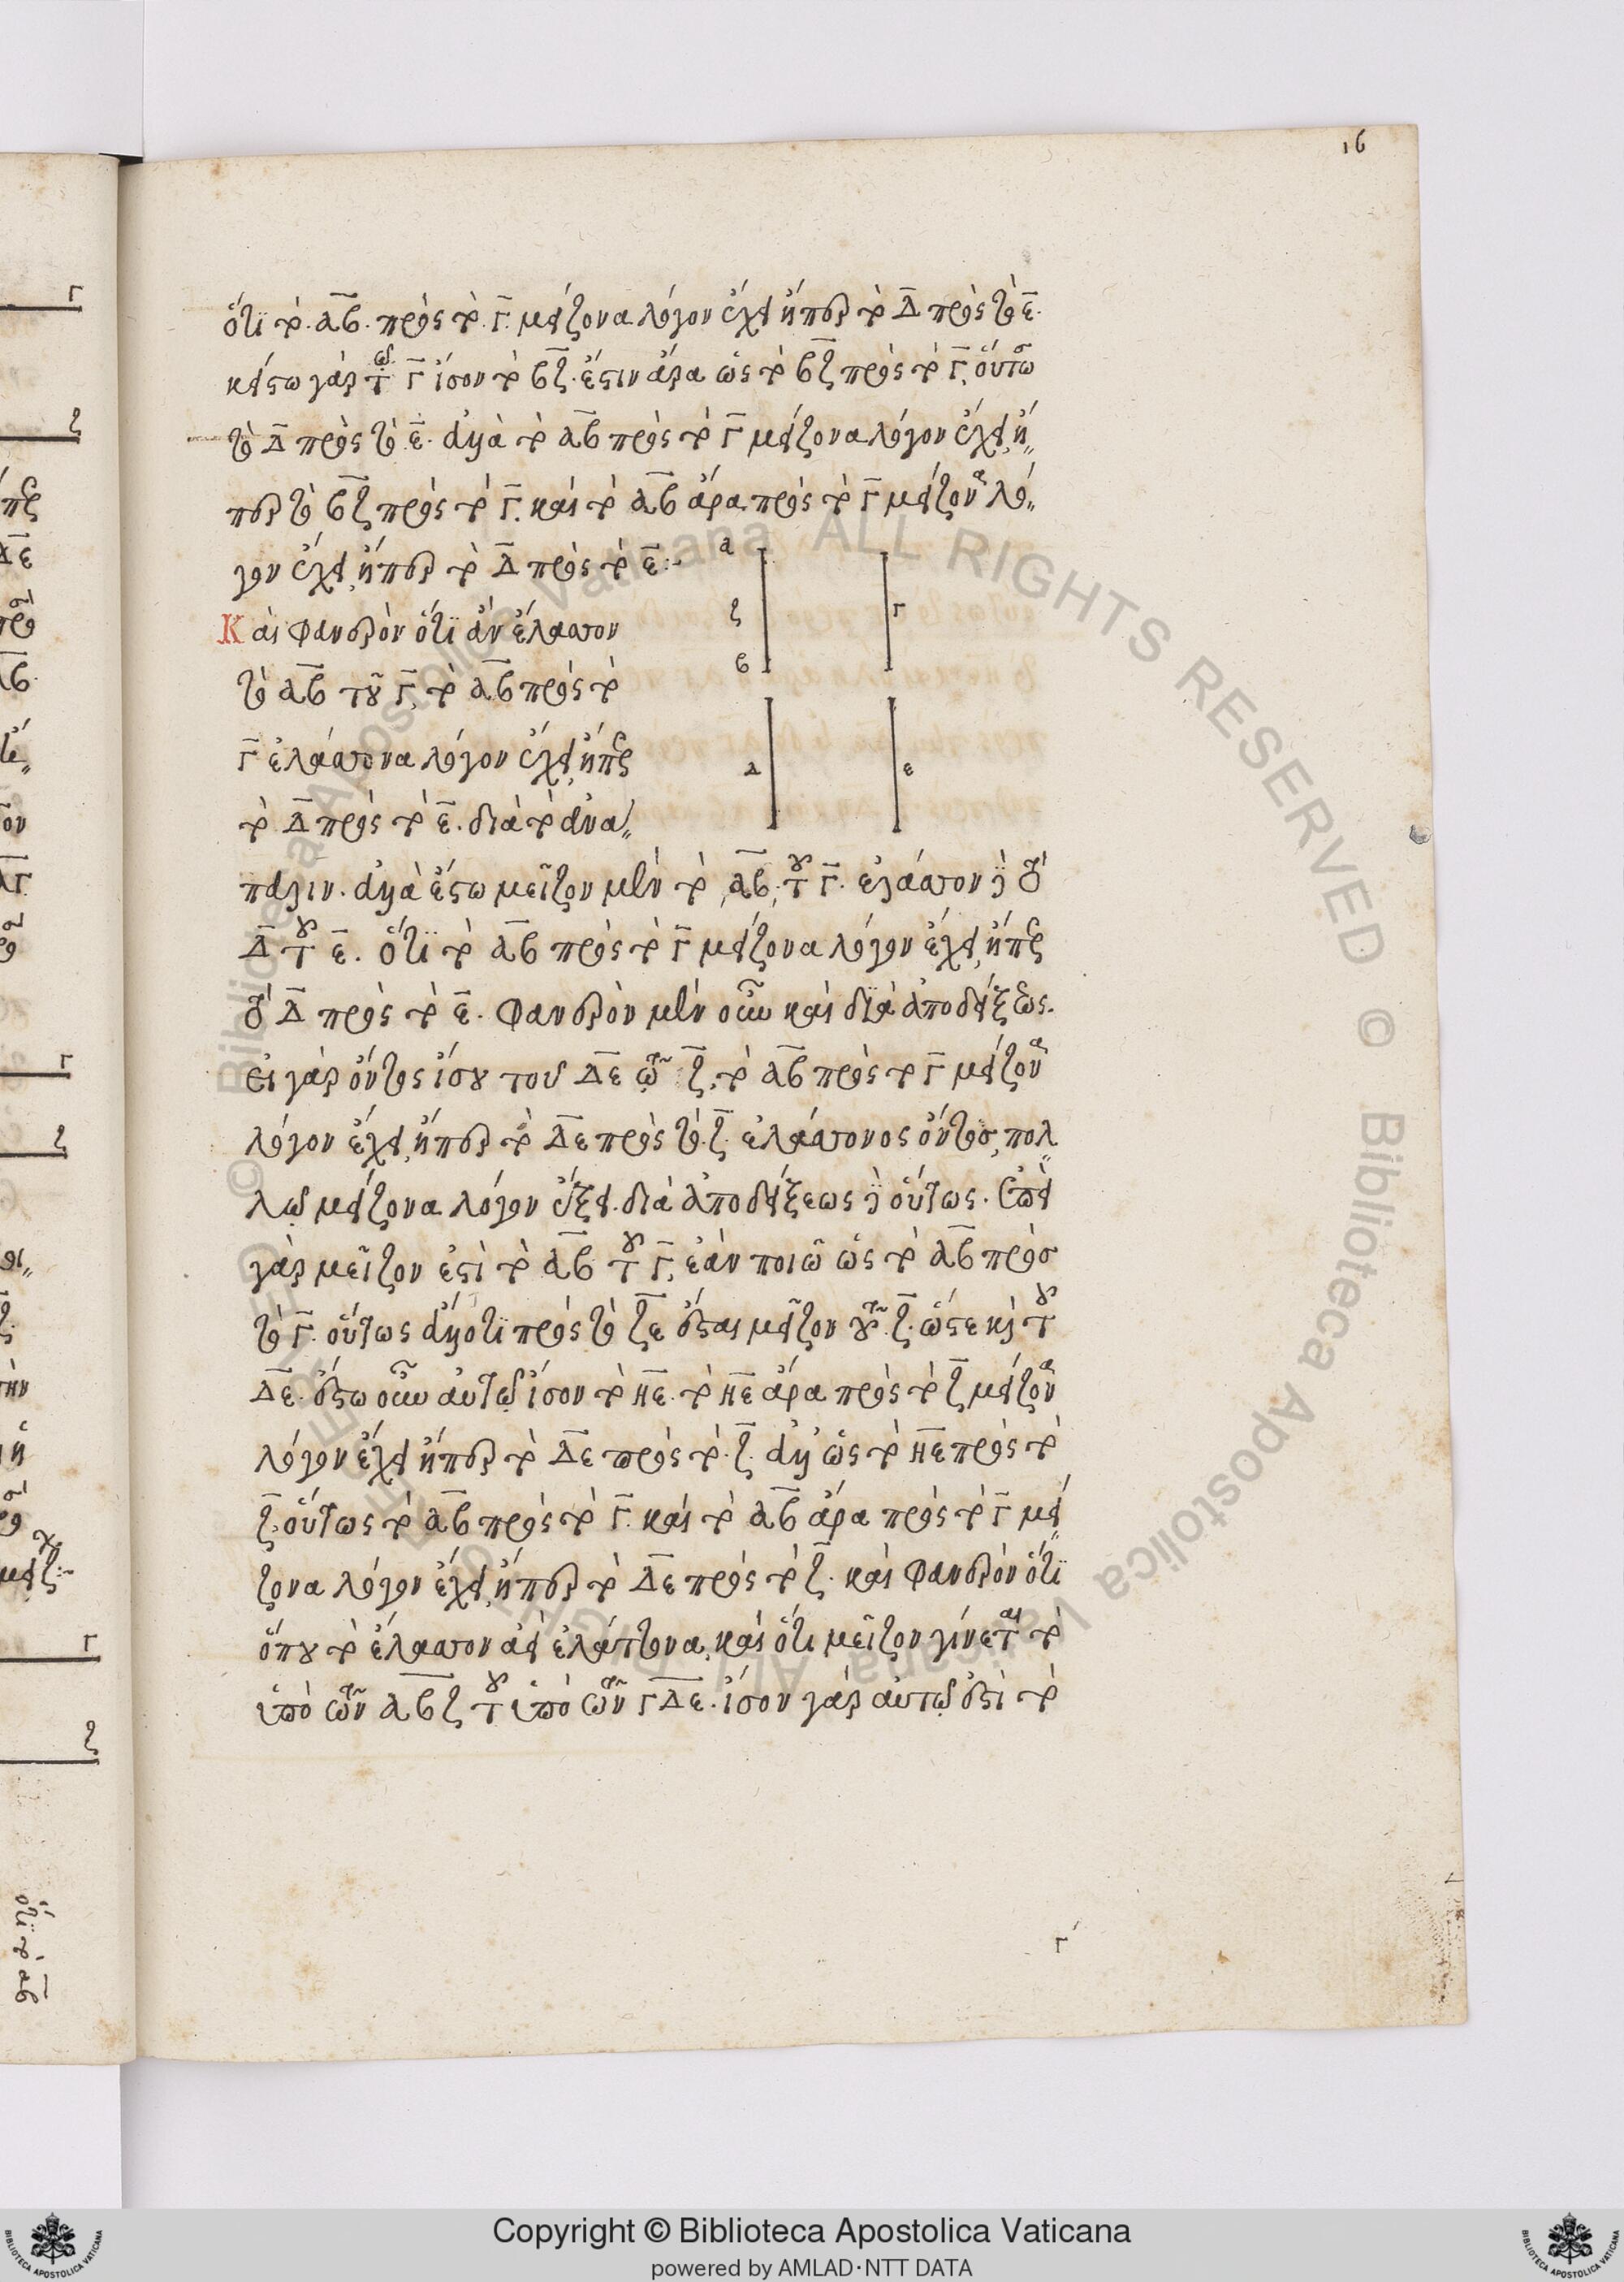 16
ὅτι τὸ. αβ. πρὸς τὸ. γ. μείζονα λόγον ἔχει ἤπερ τὸ Δ πρὸς τὸ ε.
κείσθω γὰρ τῷ γ ἴσον τὸ βζ. ἔστιν ἄρα ὡς τὸ βζ πρὸς τὸ γ, οὕτω
τὸ Δ πρὸς τὸ ε. ἀλλὰ τὸ αβ πρὸς τὸ γ μείζονα λόγον ἔχει, ἤ„
περ τὸ βζ πρὸς τὸ γ. καὶ τὸ αβ ἄρα πρὸς τὸ γ μείζονα λό„
γον ἔχει, ἤπερ τὸ Δ πρὸς τὸ ε:-
Καὶ φανερὸν ὅτι ἂν ἔλαττον
τὸ αβ τοῦ γ, τὸ αβ πρὸς τὸ
γ ἐλάττονα λόγον ἔχει, ἤπερ
τὸ Δ πρὸς τὸ ε. διὰ τὸ ἀνα„
πάλιν. ἀλλὰ ἔστω μεῖζον μὲν τὸ αβ, τοῦ γ. ἐλάττον δὲ τὸ
Δ τοῦ ε. ὅτι τὸ αβ πρὸς τὸ γ μείζονα λόγον ἔχει, ἤπερ
τὸ Δ πρὸς τὸ ε. φανερὸν μὲν οὖν καὶ διὰ ἀποδείξεως.
εἰ γὰρ ὄντος ἴσου τοῦ Δε τῷ ζ, τὸ αβ πρὸς τὸ γ μείζονα
λόγον ἔχει, ἤπερ τὸ Δε πρὸς τὸ ζ. ἐλάττονος ὄντος, πολ„
λῷ μείζονα λόγον ἕξει. διὰ ἀποδείξεως δὲ οὕτως. ἐπεὶ
γὰρ μεῖζον ἐστὶ τὸ αβ τοῦ γ, ἐὰν ποιῶ ὡς τὸ αβ πρὸσ
τὸ γ. οὕτως ἄλλο τι πρὸς τὸ ζε ἔσται μεῖζον τοῦ ζ. ὥστε καὶ τοῦ
Δε. ἔστω οὖν αὐτῷ ἴσον τὸ ηε. τὸ ηε ἄρα πρὸς τὸ ζ μείζονα
λόγον ἔχει ἤπερ τὸ Δε πρὸς τὸ. ζ. ἀλλ' ὡς τὸ ηε πρὸς τὸ
ζ, οὕτως τὸ αβ πρὸς τὸ γ. καὶ τὸ αβ ἄρα πρὸς τὸ γ μεί„
ζονα λόγον ἔχει, ἤπερ τὸ Δε πρὸς τὸ ζ. καὶ φανερὸν ὅτι
ὅπου τὸ ἔλαττον ἀεὶ ἐλάττονα, καὶ ὅτι μεῖζον γίνεται τὸ
ὑπὸ τῶν αβζ τοῦ ὑπὸ τῶν γΔε. ἴσον γὰρ αὐτῷ ἐστὶ τὸ
α
ζ
β
γ
Δ
ε
γ´
Copyright © Biblioteca Apostolica Vaticana
powered by AMLAD·NTT DATA